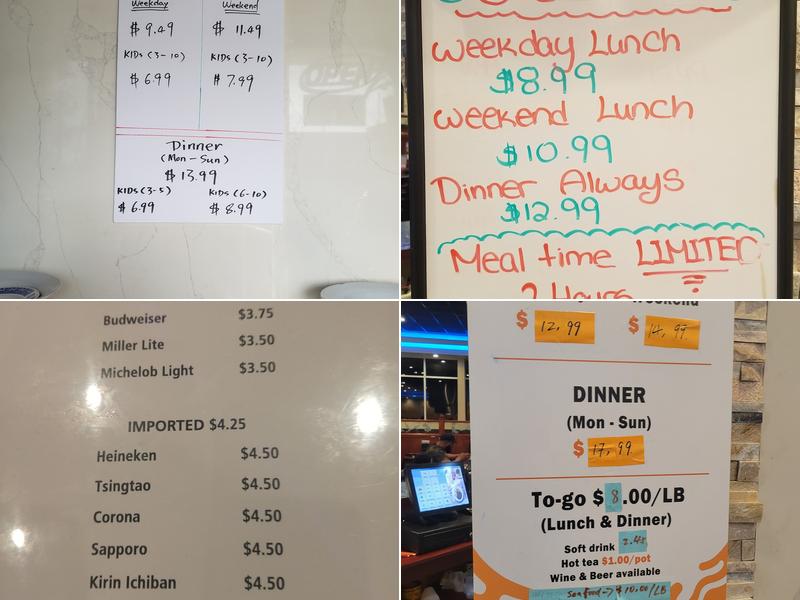 Weekday Weekend
$ 9.49 $ 11.49
KIDS (3-10) KIDS (3-10)
$ 6.99 $ 7.99
Dinner
(Mon - Sun)
$ 13.99
KIDS (3-5) KIDS (6-10)
$ 6.99 $ 8.99
OPEN
Weekday Lunch
$8.99
Weekend Lunch
$10.99
Dinner Always
$12.99
Meal time LIMITED
2 Hours
Budweiser $3.75
Miller Lite $3.50
Michelob Light $3.50
IMPORTED $4.25
Heineken $4.50
Tsingtao $4.50
Corona $4.50
Sapporo $4.50
Kirin Ichiban $4.50
Weekend
$ 12.99 $ 14.99
DINNER
(Mon - Sun)
$ 17.99
To-go $ 8.00/LB
(Lunch & Dinner)
Soft drink
Hot tea $1.00/pot
Wine & Beer available
Seafood -> $10.00/LB